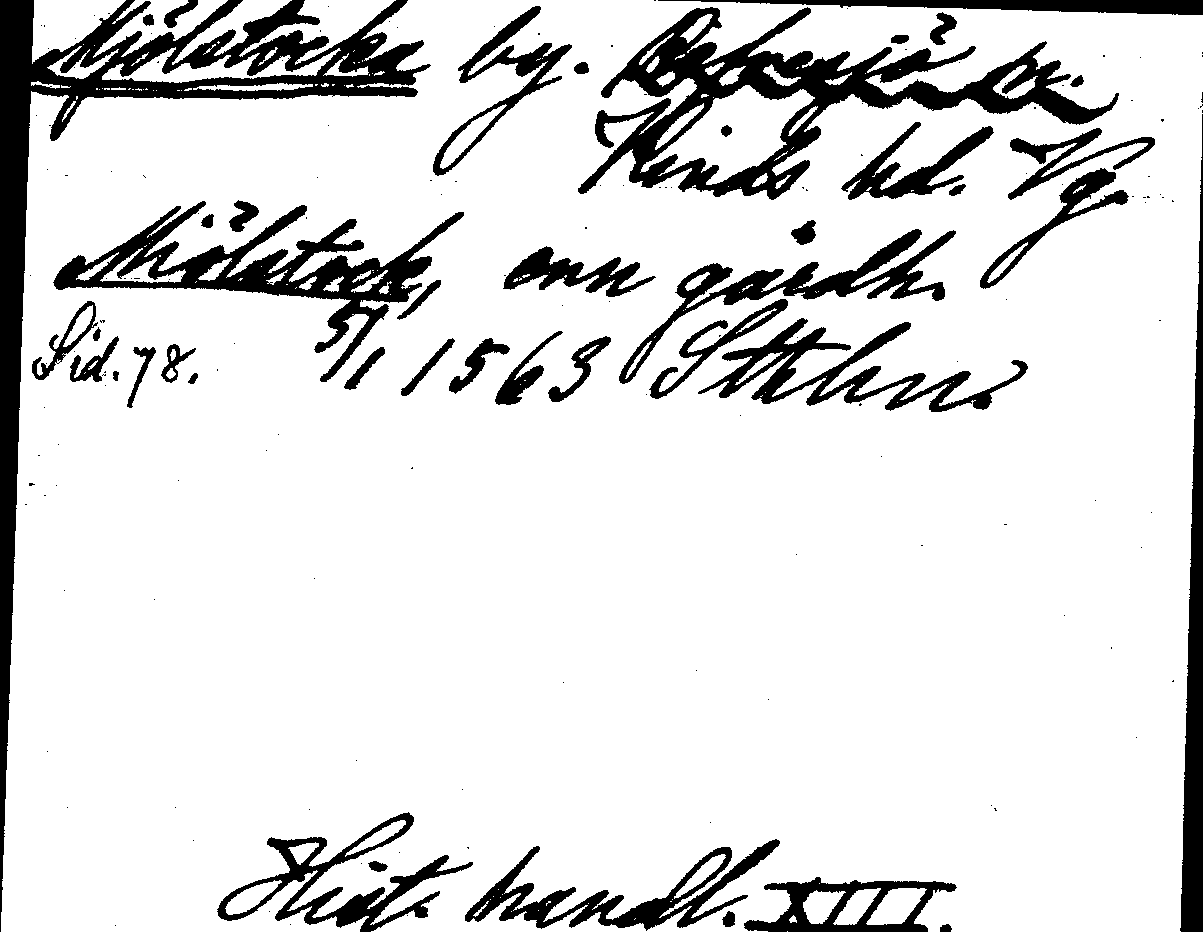 Mjölstocka by. Östersjö sn.
Kinds hd. Vg.
Miölstock, enn gårdh.
Sid. 78. 5/1 1563 Sthlm.
Hist. handl. XIII.